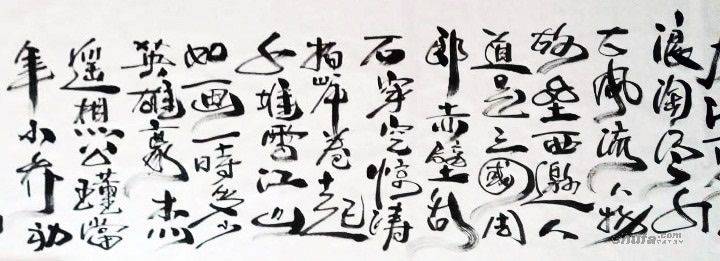 浪淘尽千
古風流人物
故壘西邊人
道是三國周
郎赤壁乱
石穿空惊濤
拍岸卷起
千堆雪江山
如画一時多少
英雄豪杰
遥想公瑾當
年小乔初